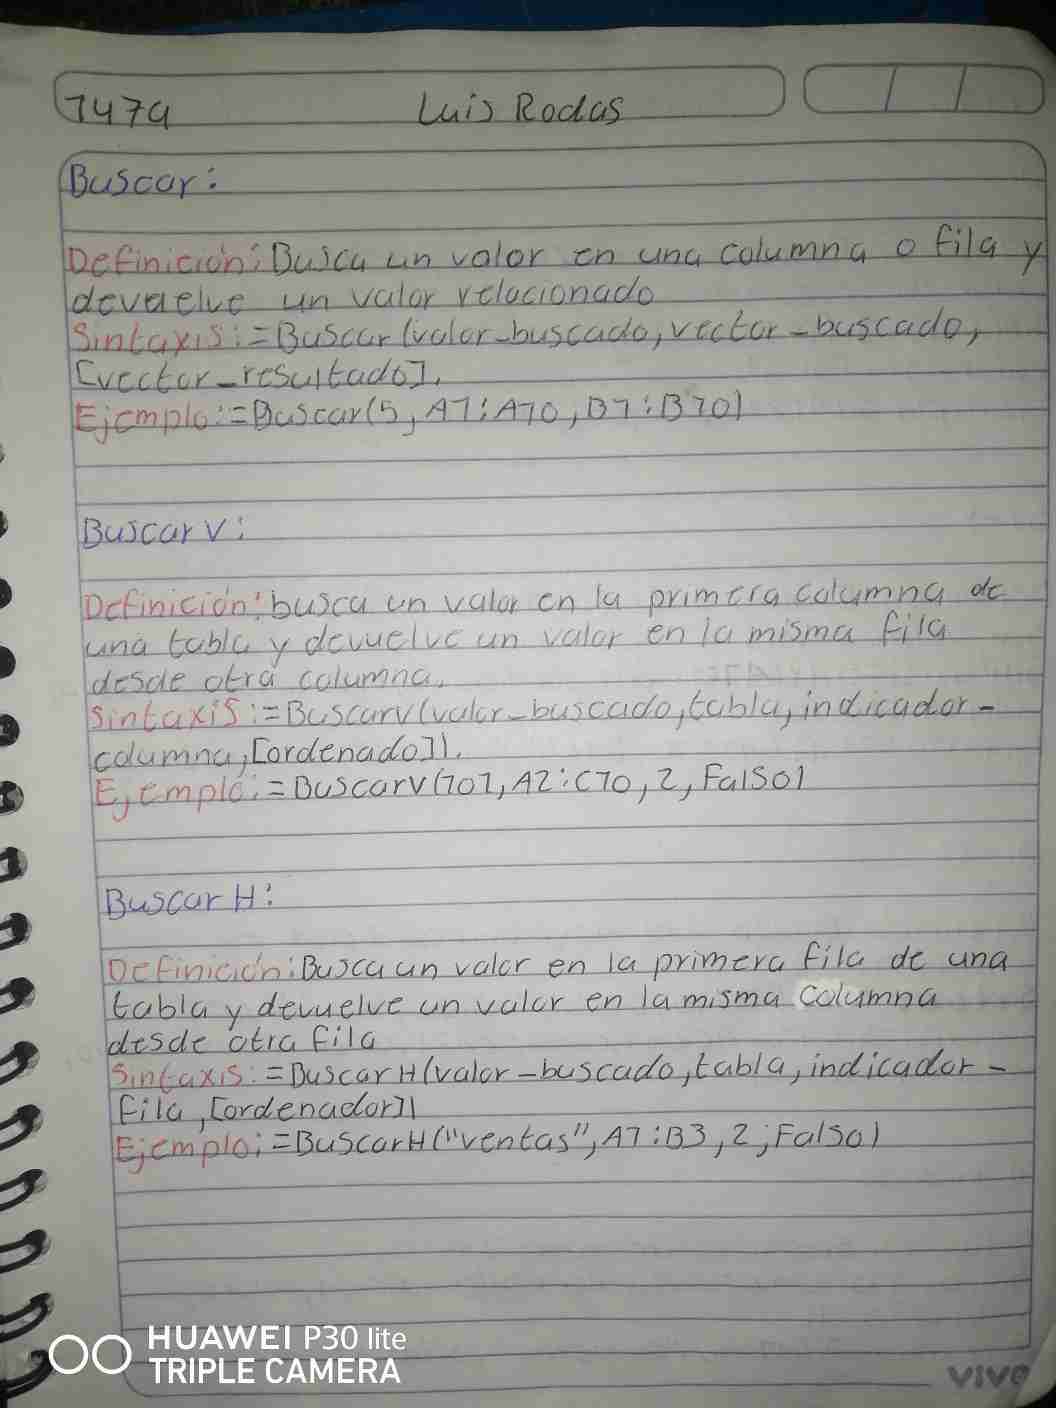 1479 Luis Rodas
Buscar:
Definición: Busca un valor en una columna o fila y
devuelve un valor relacionado
Sintaxis: =Buscar(valor_buscado, vector_buscado,
[vector_resultado].
Ejemplo: =Buscar(5, A1:A10, B1:B10)
Buscar V:
Definición: busca un valor en la primera columna de
una tabla y devuelve un valor en la misma fila
desde otra columna.
Sintaxis: =BuscarV(valor_buscado, tabla, indicador_
columna, [ordenado]).
Ejemplo: =BuscarV(101, A2:C10, 2, Falso)
Buscar H:
Definición: Busca un valor en la primera fila de una
tabla y devuelve un valor en la misma columna
desde otra fila
Sintaxis: =Buscar H(valor_buscado, tabla, indicador_
fila, [ordenador])
Ejemplo: =BuscarH("ventas", A1:B3, 2; Falso)
HUAWEI P30 lite
TRIPLE CAMERA
vivo